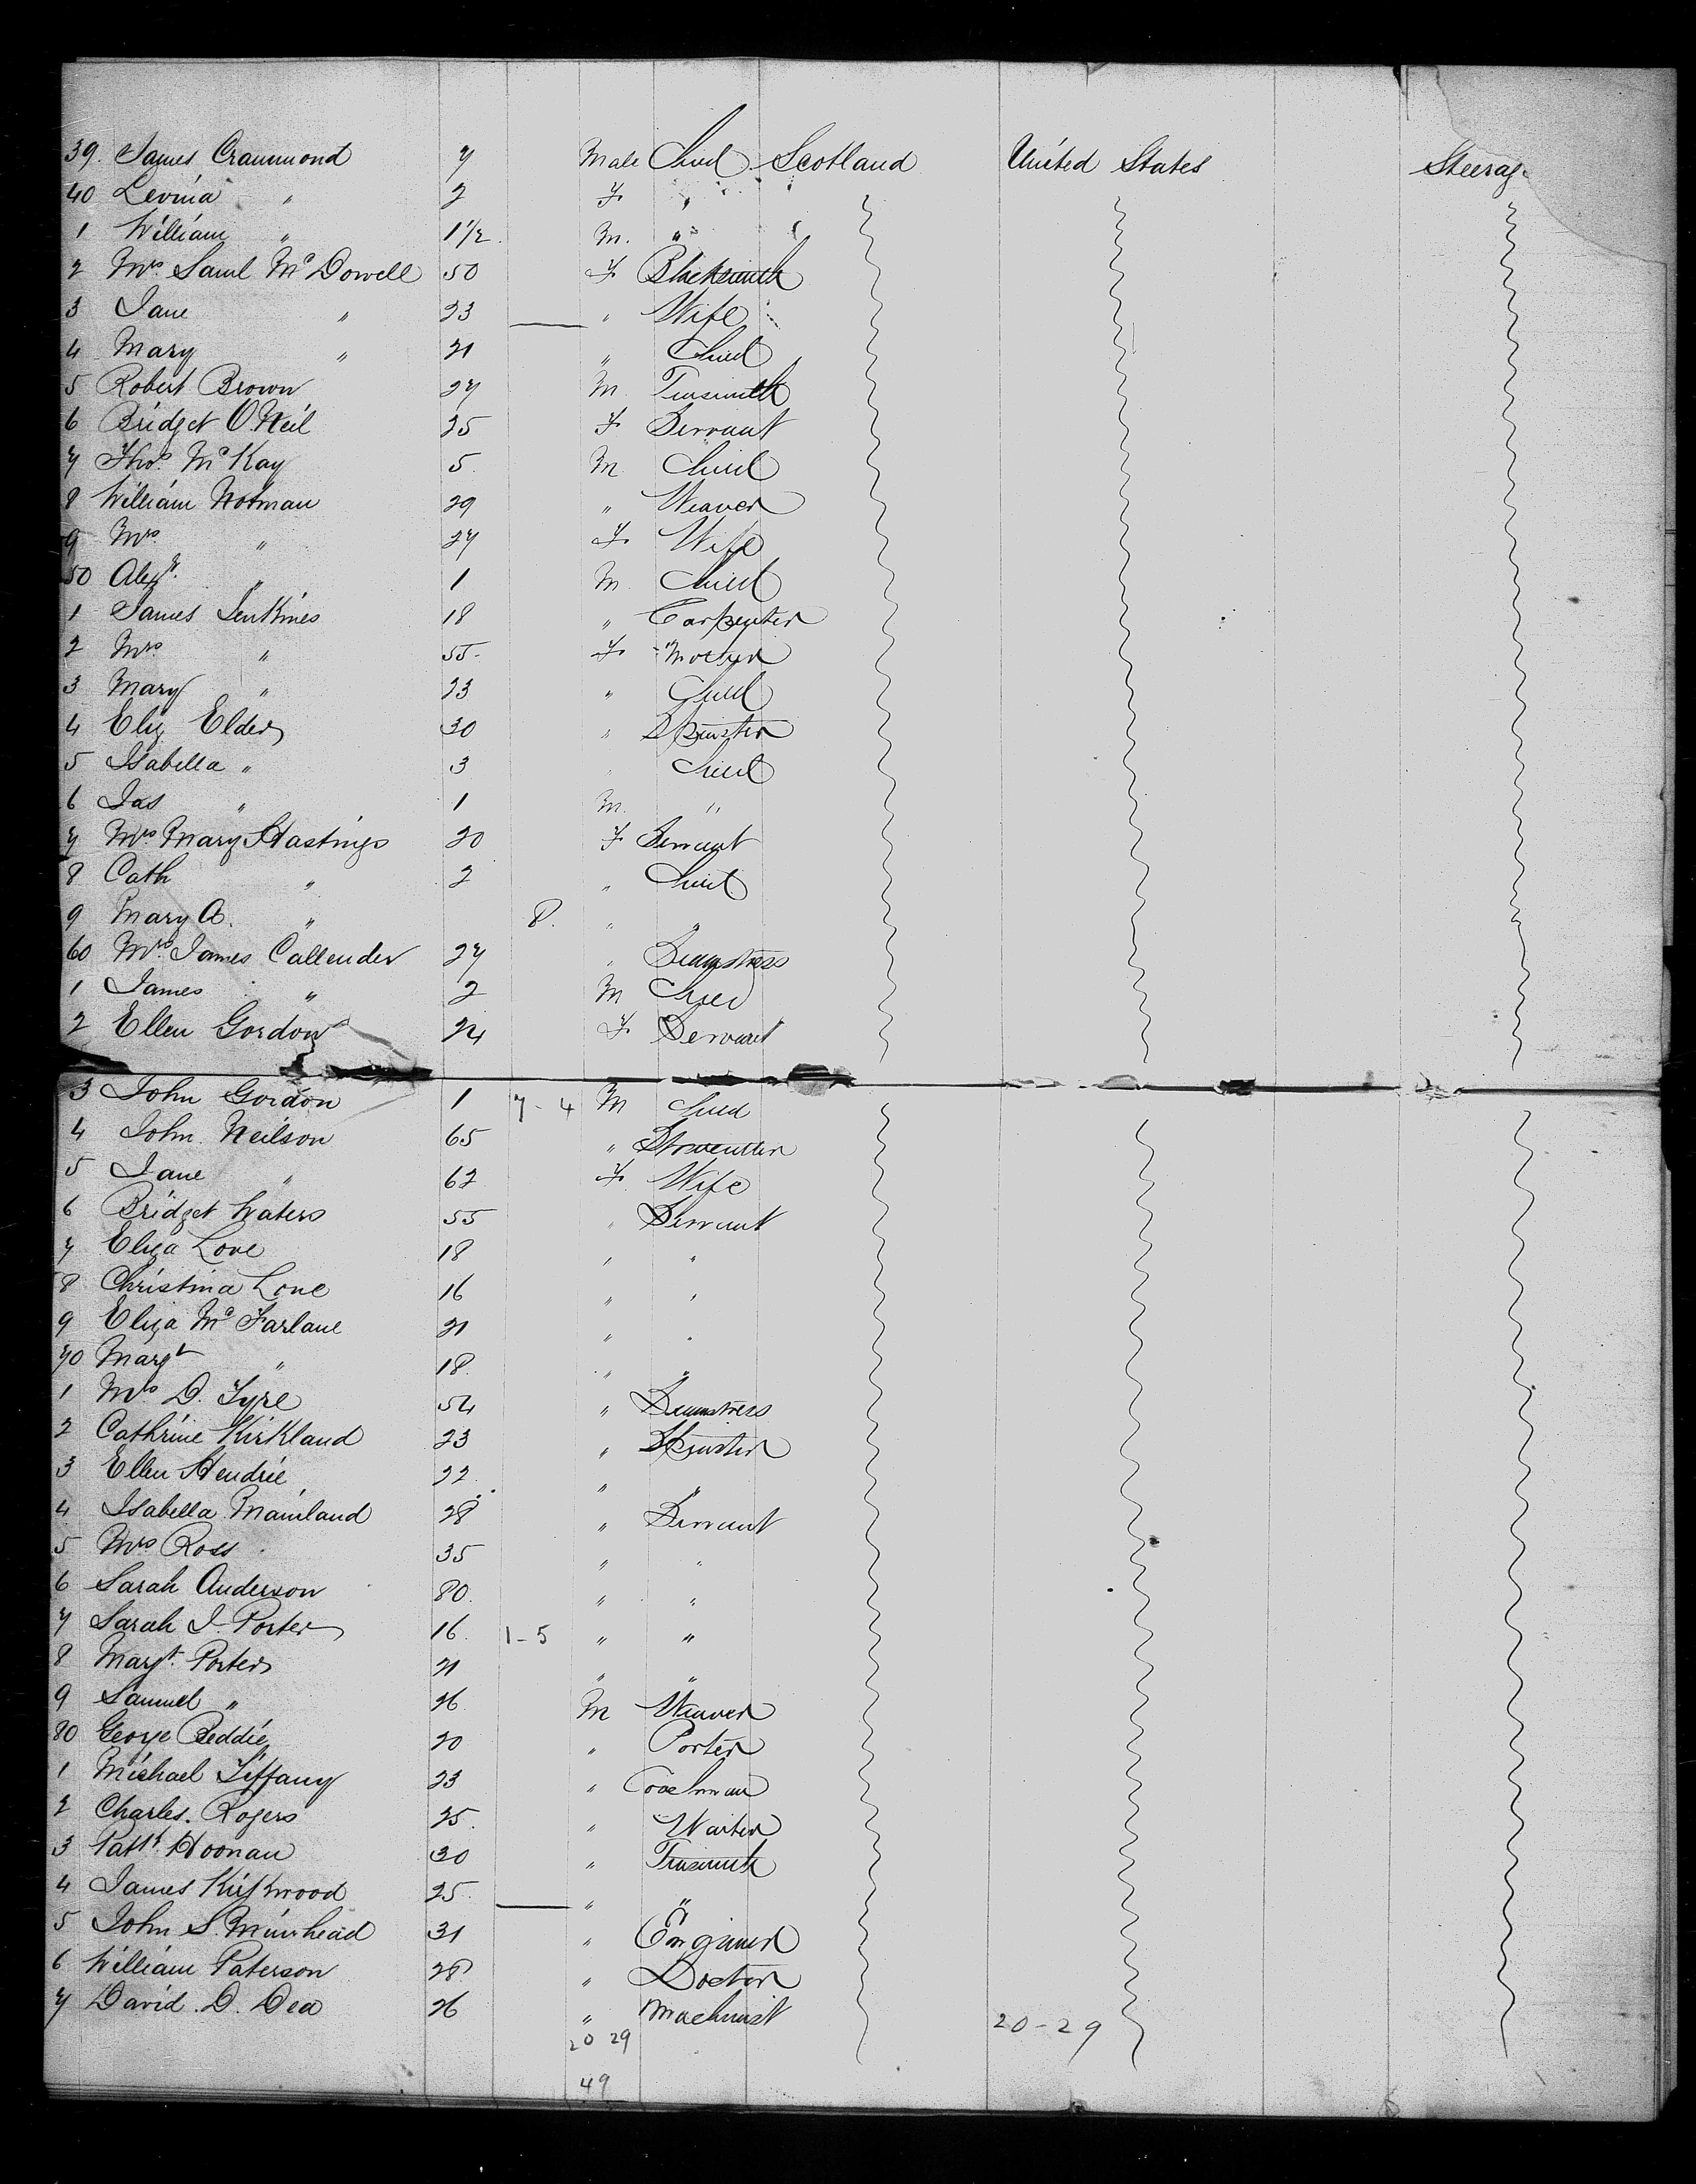 39. James Crammond 7 Male Child Scotland United States Steerag
40 Levina " 2 F. "
1 William " 1 1/2. M. "
2 Mrs. Saml McDowell 50 F Blacksmith
3 Jane " 23 " Wife
4 Mary " 21 " Child
5 Robert Brown 27 M Tinsmith
6 Bridget O.Neil 25 F Servant
7 Thos. McKay 5. M Child
8 William Notman 29 " Weaver
9 Mrs. " 27 F. Wife
50 Alexr. " 1 M Child
1 James Jenkines 18 " Carpenter
2 Mrs. " 55 F. Mother
3 Mary " 23 " Child
4 Eliz Elder 30 " Spinster
5 Isabella " 3 " Child
6 Jas " 1 M. "
7 Mrs. Mary Hastings 20 F Servant
8 Cath " 2 " Child
9 Mary A. " 8. " "
60 Mrs. James Callender 27 " Seamstress
1 James " 2 M Child
2 Ellen Gordon 24 F. Servant
3 John Gordon 1 7-4 M Child
4 John Neilson 65 "
5 Jane " 62 F. Wife
6 Bridget Waters 55 " Servant
7 Eliza Love 18 " "
8 Christina Love 16 " "
9 Eliza McFarlane 21 " "
70 Margt " 18. " "
1 Mrs D. Tyre 54 " Seamstress
2 Cathrine Kirkland 23 " Spinster
3 Ellen Hendrie 22 " "
4 Isabella Mainland 28 " Servant
5 Mrs Ross 35 " "
6 Sarah Anderson 80. " "
7 Sarah J. Porter 16. 1-5 " "
8 Margt. Porter 21 " "
9 Samuel " 26 M Weaver
80 George Beddie 20 " Porter
1 Michael Tiffany 23 " Coachman
2 Charles. Rogers 25. " Waiter
3 Patk. Noonan 30 " Tinsmith
4 James Kirkwood 25. " "
5 John S. Muirhead 31 " Enginer
6 William Paterson 28 " Doctor
7 David. D. Dea 26 " Machinist
20 29 20-29
49